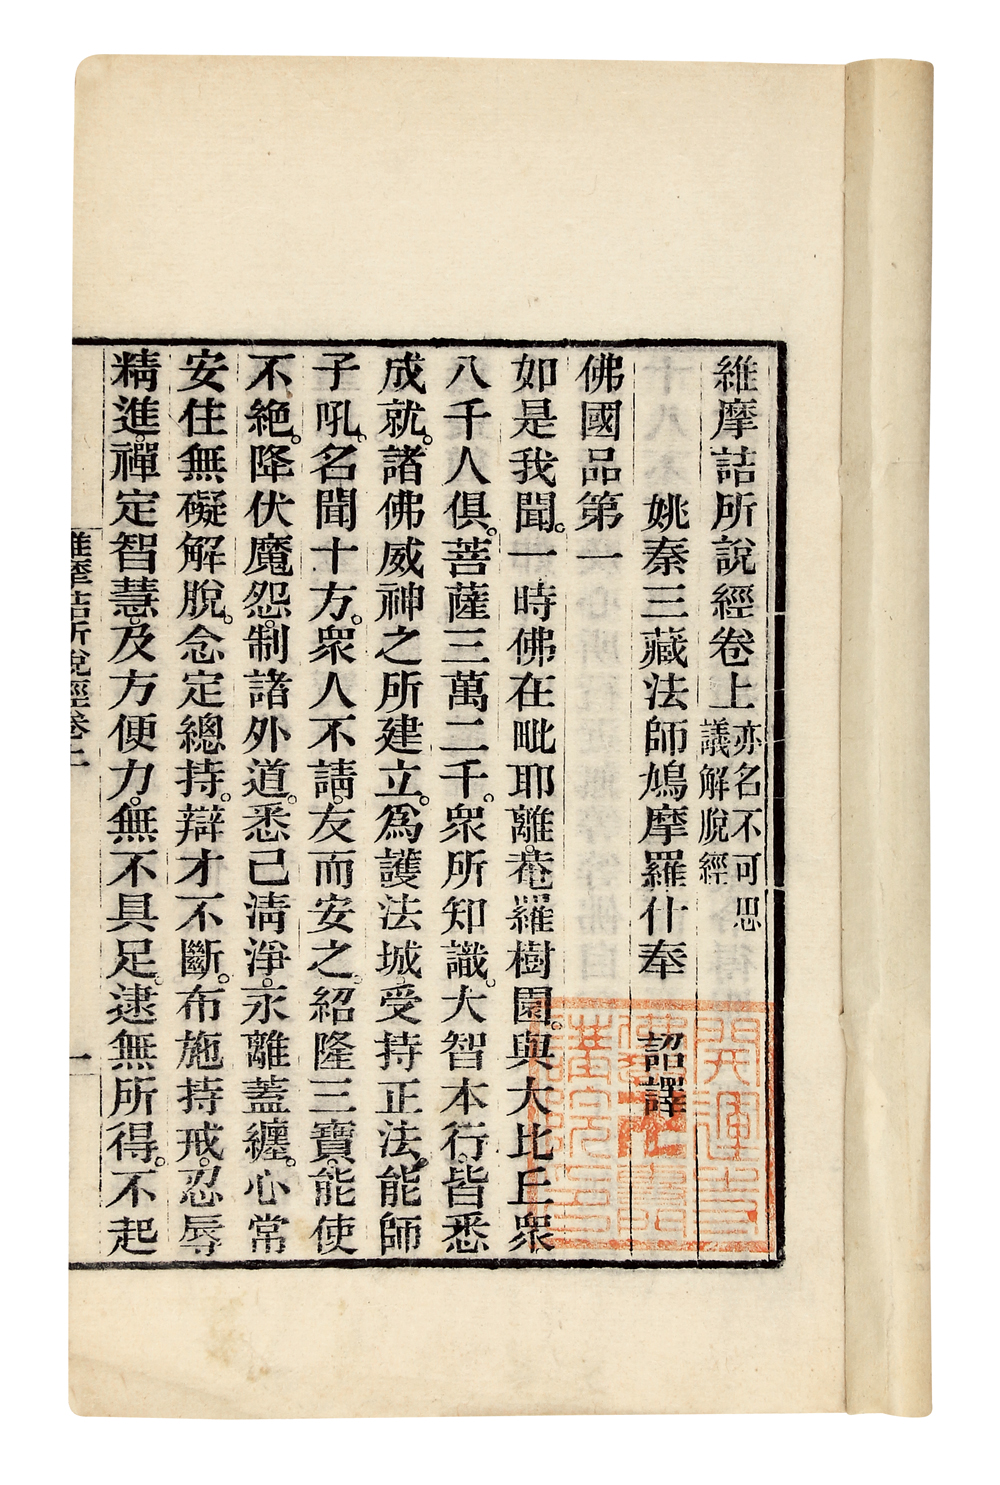 維摩詰所說經卷上亦名不可思
議解脫經
姚秦三藏法師鳩摩羅什奉 詔譯
佛國品第一
如是我聞。一時佛在毗耶離。菴羅樹園。與大比丘衆
八千人俱。菩薩三萬二千。衆所知識。大智本行。皆悉
成就。諸佛威神之所建立。爲護法城。受持正法。能師
子吼。名聞十方。衆人不請。友而安之。紹隆三寶。能使
不絶。降伏魔怨。制諸外道。悉已清淨。永離蓋纏。心常
安住無礙解脫。念定總持。辯才不斷。布施持戒。忍辱
精進。禪定智慧。及方便力。無不具足。逮無所得。不起
維摩詰所說經卷上
一